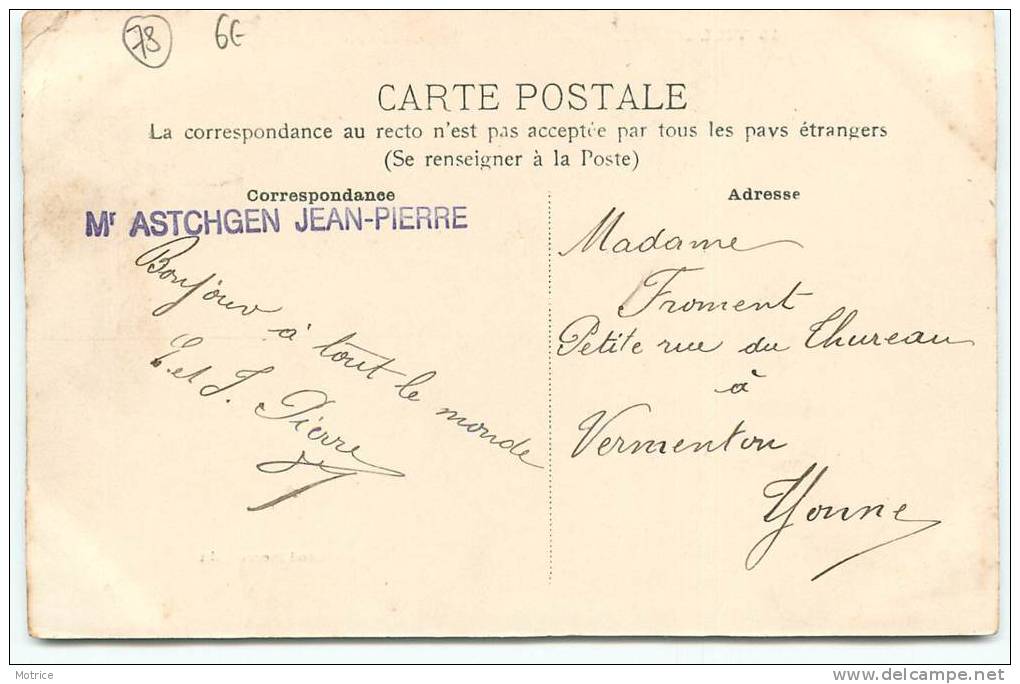 78 6€
CARTE POSTALE
La correspondance au recto n'est pas acceptée par tous les pays étrangers
(Se renseigner à la Poste)
Correspondance
Mr ASTCHGEN JEAN-PIERRE
Bonjour à tout le monde
E. et J. Pierre
Adresse
Madame
Froment
Petite rue du Thureau
à
Vermenton
Yonne
Motrice
delcampe.net